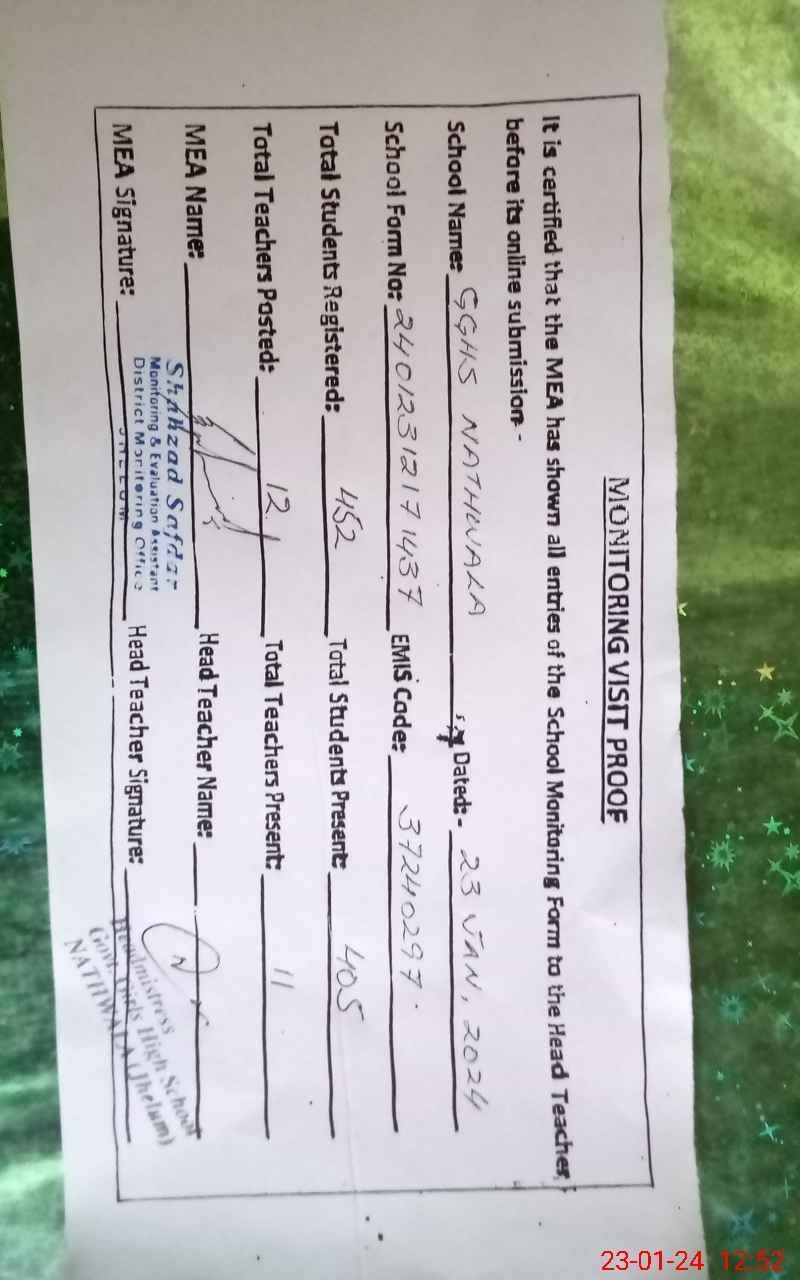 MONITORING VISIT PROOF
It is certified that the MEA has shown all entries of the School Monitoring Form to the Head Teacher,
before its online submission -
School Name: GGHS NATHWALA Dated:- 23 JAN, 2024
School Form No: 2401231217 1437 EMIS Code: 37240297.
Total Students Registered: 452 Total Students Present: 405
Total Teachers Posted: 12 Total Teachers Present: 11
MEA Name: Head Teacher Name:
Shahzad Safdar
Monitoring & Evaluation Assistant
District Monitoring Office
JHELUM
MEA Signature: Head Teacher Signature:
Headmistress
Govt. Girls High School
NATHWALA (Jhelum)
23-01-24 12:52